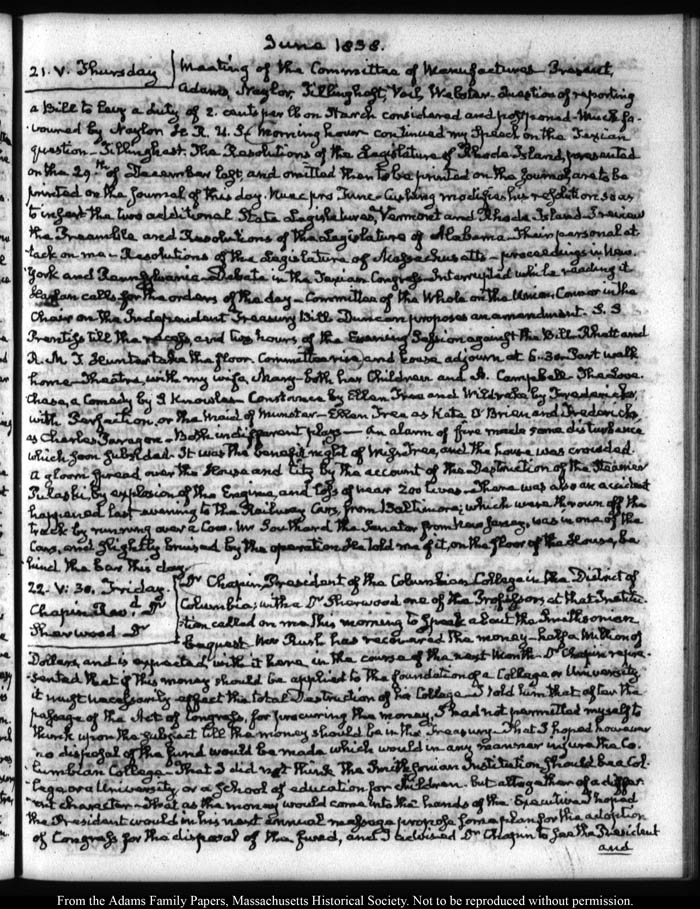 June 1838.
21. V. Thursday
Meeting of the Committee of Manufactures Present,
Adams, Naylor, Tillinghast, Vail, Webster. Question of reporting
a Bill to levy a duty of 2. cents per lb on Starch considered and postponed. Much fa-
voured by Naylor H. R. U. S. Morning hour continued my Speech on the Texian
question. Tillinghast. The Resolutions of the Legislature of Rhode-Island, presented
on the 29th of December last, and omitted then to be printed on the Journal are to be
printed on the Journal of this day. Nunc pro Tunc. Cushing modifies his resolution so as
to insert the two additional State Legislatures, Vermont and Rhode Island. I review
the Preamble and Resolutions of the Legislature of Alabama. Their personal at-
tack on me - Resolutions of the Legislature of Massachusetts - proceedings in New-
York and Pennsylvania. Debate in the Texian Congress. Interrupted while reading it
calls for the orders of the day - Committee of the Whole on the Union. Connor in the
Chair on the Independent Treasury Bill. Duncan proposes an amendment. S. S
Prentiss till the recess, and two hours of the Evening Session against the Bill. Rhett and
R. M. T. Hunter take the floor. Committee rise, and house adjourn at 6.30. Part walk
home. Theatre, with my wife, Mary - both her Children and A. Campbell. The Love
Chase, a Comedy by S Knowles - Constance by Ellen Tree and Wildrake by Fredericks,
with Perfection, or the Maid of Munster - Ellen Tree as Kate O'Brien and Fredericks
as Charles Paragon. Both indifferent plays - An alarm of fire made some disturbance
which soon subsided. It was the benefit night of Miss Tree, and the house was crowded.
A gloom spread over the House and City by the account of the Destruction of the Steamer
Pulaski, by explosion of the Engine, and loss of near 200 lives. There was also an accident
happened last evening to the Railway Cars, from Baltimore; which were thrown off the
track by running over a Cow. Mr Southard the Senator from New Jersey, was in one of the
Cars, and slightly bruised by the operation. He told me of it, on the floor of the House, be-
hind the bar this day.
22. V: 30. Friday.
Chapin Revd. Dr
Sherwood Dr
Dr Chapin, President of the Columbian College in the District of
Columbia, with a Dr Sherwood one of the Professors at that Institu-
tion called on me this morning to speak about the Smithsonian
bequest. Mr Rush has recovered the money - half a Million of
Dollars, and is expected with it here, in the course of the next Month. Dr Chapin repre-
sented that if this money should be applied to the foundation of a College or University
it must necessarily effect the total Destruction of his College. I told him that after the
passage of the Act of Congress, for procuring the money, I had not permitted myself to
think upon the subject till the money should be in the Treasury. That I hoped however
no disposal of the fund would be made which would in any manner injure the Co-
lumbian College. That I did not think the Smithsonian Institution should be a Col-
lege or a University, or a School of education for children. but altogether of a differ-
ent character. That as the money would come into the hands of the Executive I hoped
the President would in his next annual message propose some plan for the adoption
of Congress for the disposal of the fund, and I advised Dr Chapin to see the President
and
From the Adams Family Papers, Massachusetts Historical Society. Not to be reproduced without permission.